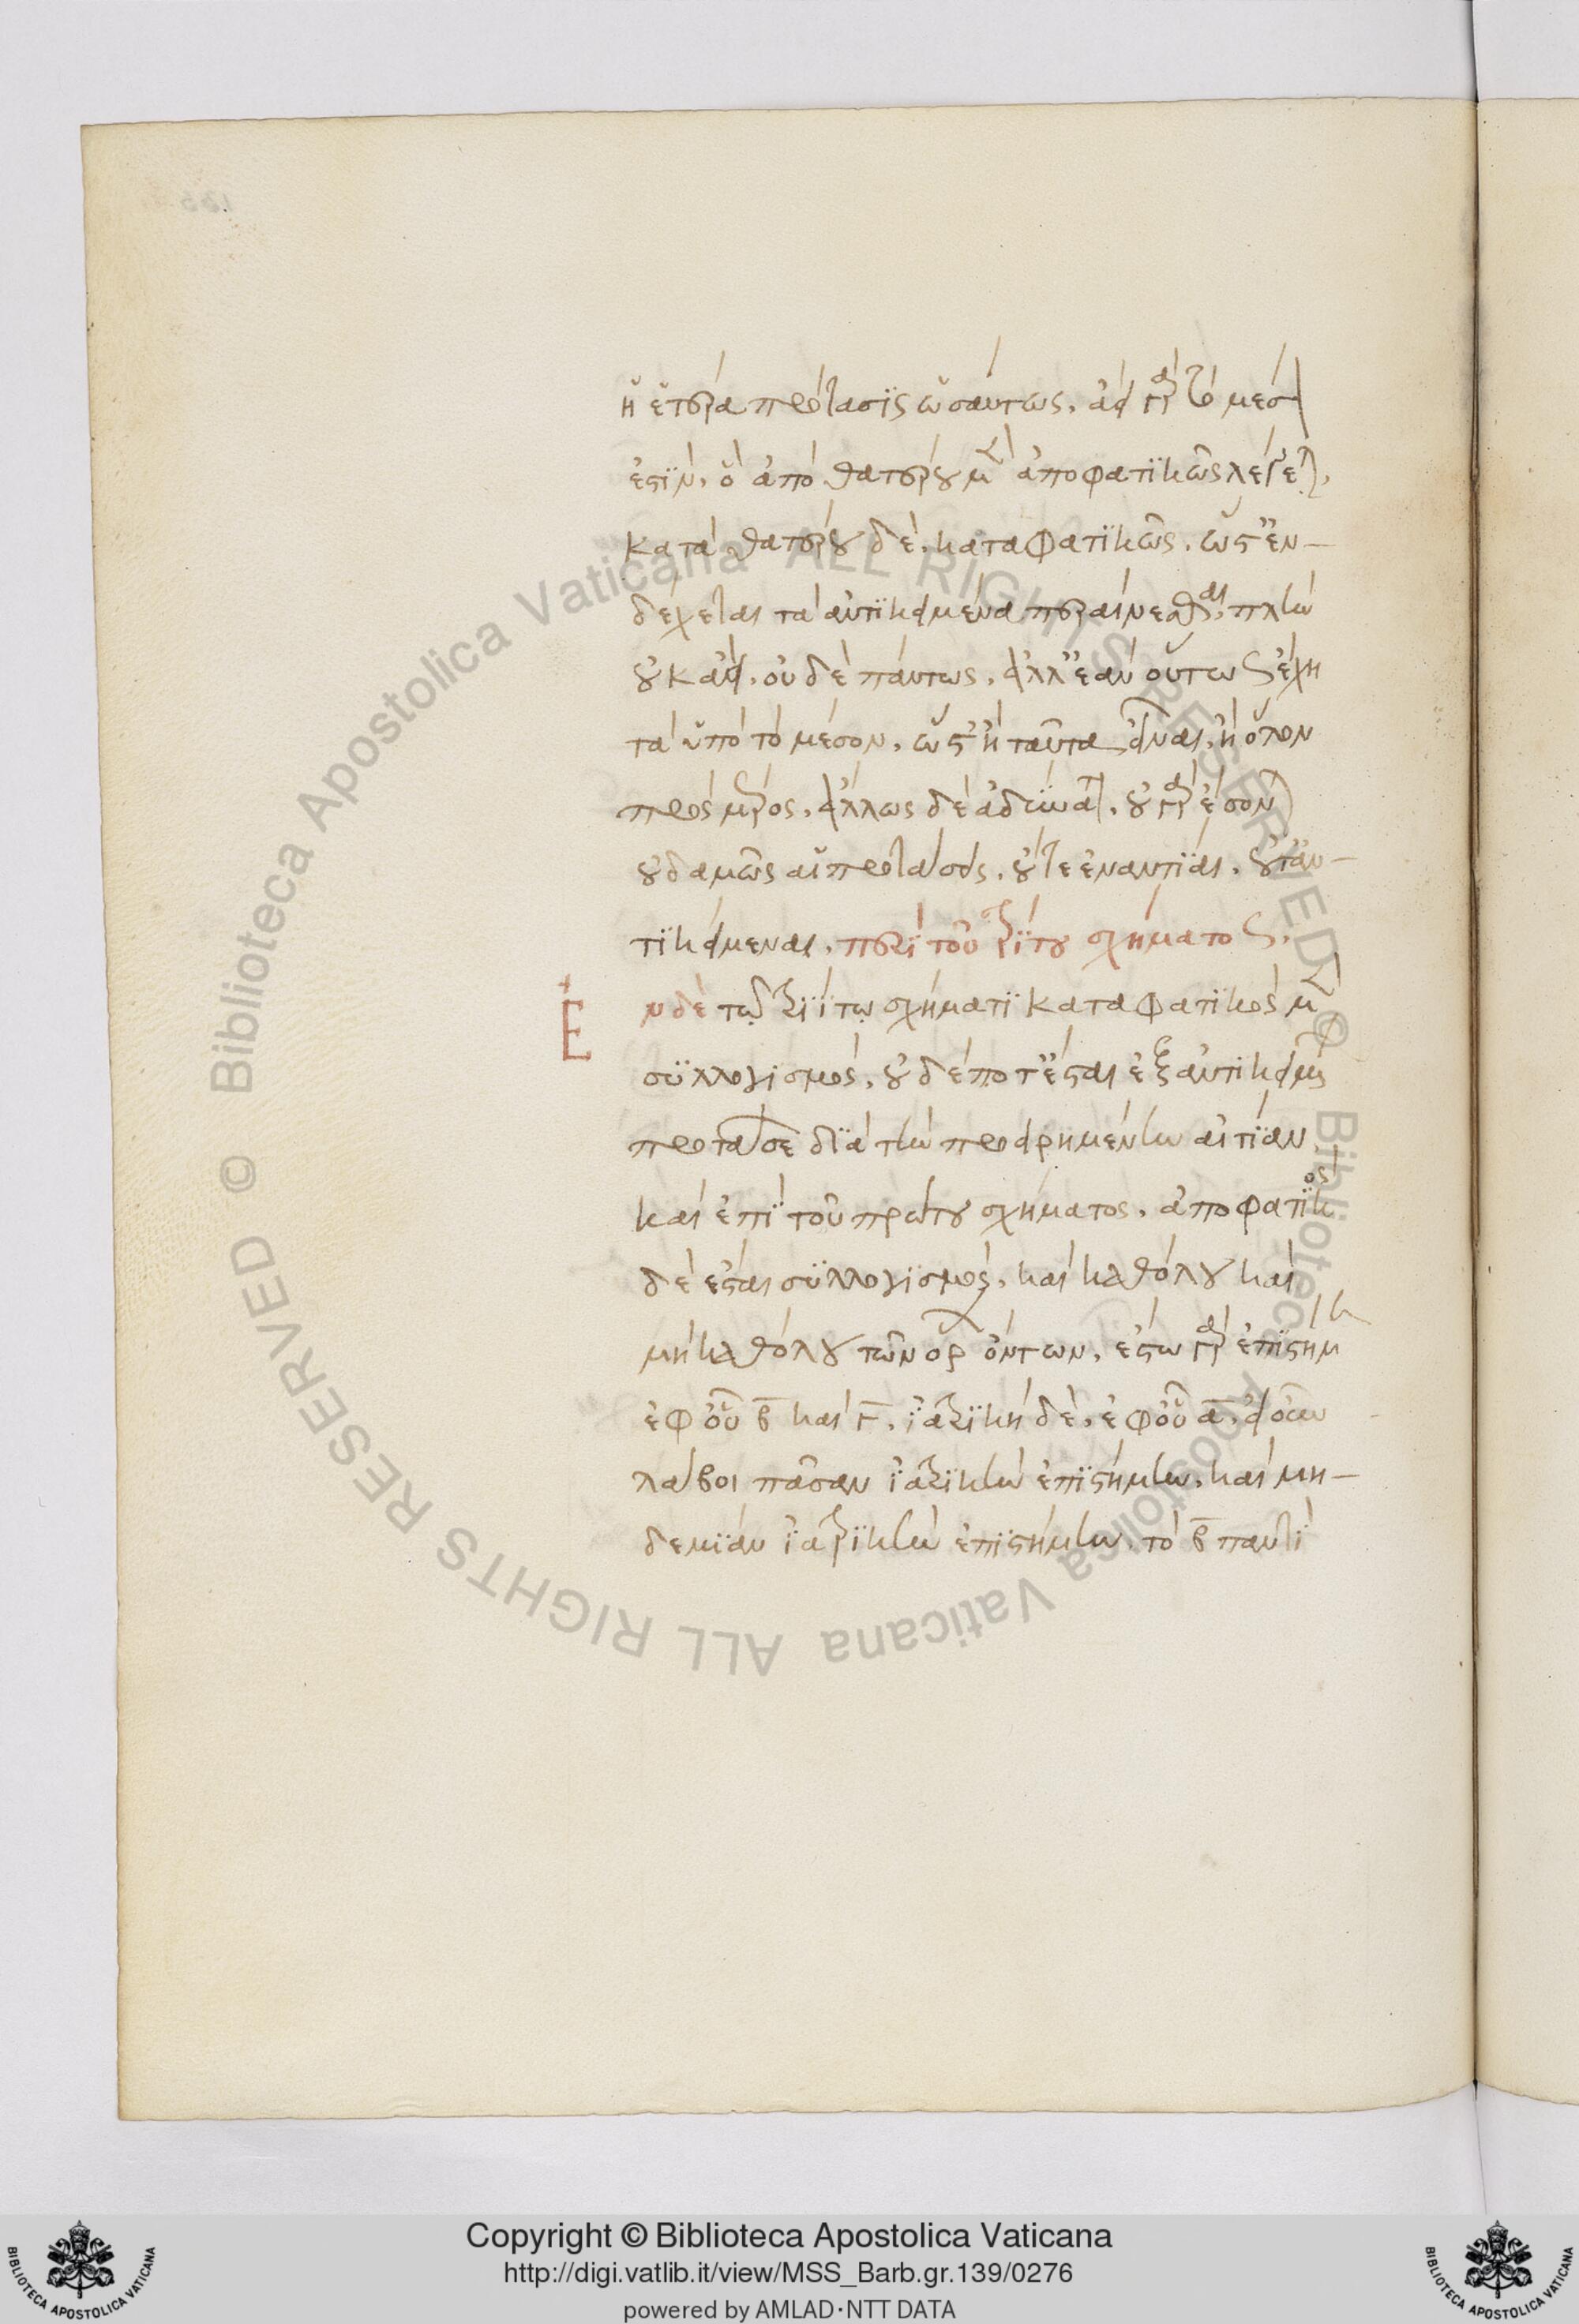 ἡ ἑτέρα πρότασις ὡσαύτως. ἀεὶ γὰρ τὸ μέσον
ἐστὶν, ὃ ἀπὸ θατέρου μὲν ἀποφατικῶς λέγεται,
κατὰ θατέρου δὲ, καταφατικῶς. ὥστ' ἐν-
δέχεται τἀντικείμενα περαίνεσθαι, πλὴν
οὐκ ἀεὶ, οὐδὲ πάντως, ἀλλ' ἐὰν οὕτως ἔχη
τὰ ὑπὸ τὸ μέσον, ὥστ' ἢ ταῦτα εἶναι, ἢ ὅλον
πρὸς μέρος. ἄλλως δὲ ἀδύνατον. οὐ γὰρ ἔσονται
οὐδαμῶς αἱ προτάσεις, οὔτε ἐναντίαι, οὔτ' ἀν-
τικείμεναι. περὶ τοῦ τρίτου σχήματος.
Ἐν δὲ τῷ τρίτῳ σχήματι καταφατικὸς μὲν
συλλογισμὸς, οὐδέποτ' ἔσται ἐξ ἀντικειμένων
προτάσεων διὰ τὴν προειρημένην αἰτίαν
καὶ ἐπὶ τοῦ πρώτου σχήματος. ἀποφατικὸς
δὲ ἔσται συλλογισμὸς, καὶ καθόλου καὶ
μὴ καθόλου τῶν ὅρων ὄντων. ἔστω γὰρ ἐπιστήμη
ἐφ' οὗ β καὶ γ, ἰατρικὴ δὲ, ἐφ' οὗ α. εἰ οὖν
λάβοι πᾶσαν ἰατρικὴν ἐπιστήμην, καὶ μη-
δεμίαν ἰατρικὴν ἐπιστήμην, τὸ β παντὶ
Copyright © Biblioteca Apostolica Vaticana
http://digi.vatlib.it/view/MSS_Barb.gr.139/0276
powered by AMLAD·NTT DATA